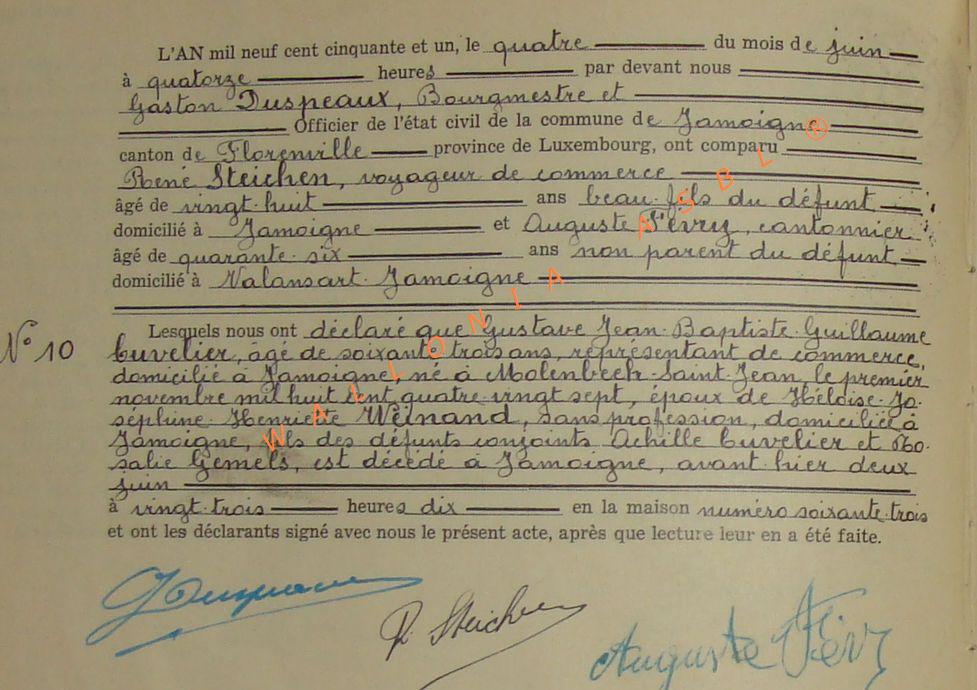 L'AN mil neuf cent cinquante et un, le quatre du mois de juin
à quatorze heures par devant nous
Gaston Duspeaux, Bourgmestre et
Officier de l'état civil de la commune de Jamoigne
canton de Florenville province de Luxembourg, ont comparu
René Steichen, voyageur de commerce
âgé de vingt-huit ans beau-fils du défunt
domicilié à Jamoigne et Auguste Févry, cantonnier
âgé de quarante-six ans non parent du défunt
domicilié à Valansart-Jamoigne
Lesquels nous ont déclaré que Gustave Jean-Baptiste-Guillaume
N° 10 Cuvelier, âgé de soixante trois ans, représentant de commerce,
domicilié à Jamoigne, né à Molenbeek-Saint-Jean, le premier
novembre mil huit cent quatre vingt sept, époux de Héloïse-Jo-
séphine-Henriette Weinand, sans profession, domiciliée à
Jamoigne, fils des défunts conjoints Achille Cuvelier et Ro-
salie Gemels, est décédé à Jamoigne, avant-hier deux
juin
à vingt-trois heures dix en la maison numéro soixante-trois
et ont les déclarants signé avec nous le présent acte, après que lecture leur en a été faite.
R. Steichen
Auguste Févry
WALLONIA ASBL ®